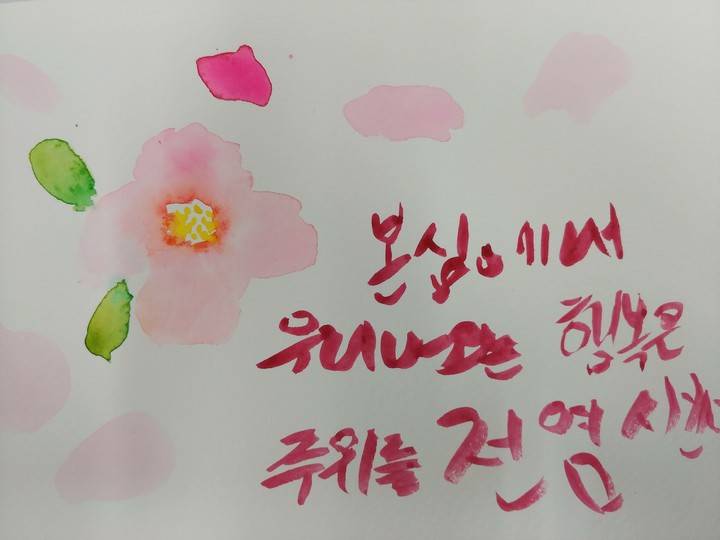 본심에서
우러나오는 행복은
주위를 전염시킨